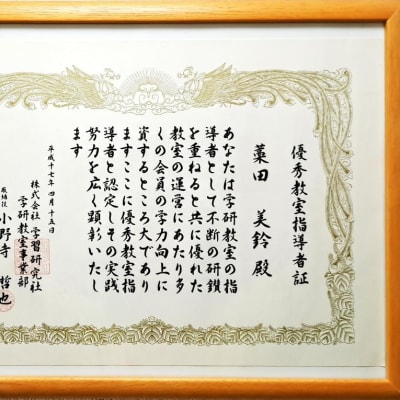 優秀教室指導者証
藁田 美鈴 殿
あなたは学研教室の指
導者として不断の研鑽
を重ねると共に優れた
教室の運営にあたり多
くの会員の学力向上に
資するところ大であり
ますここに優秀教室指
導者と認定しその実践
努力を広く顕彰いたし
ます
平成十七年四月十五日
株式会社 学習研究社
学研教室事業部
取締役 小野寺 哲也